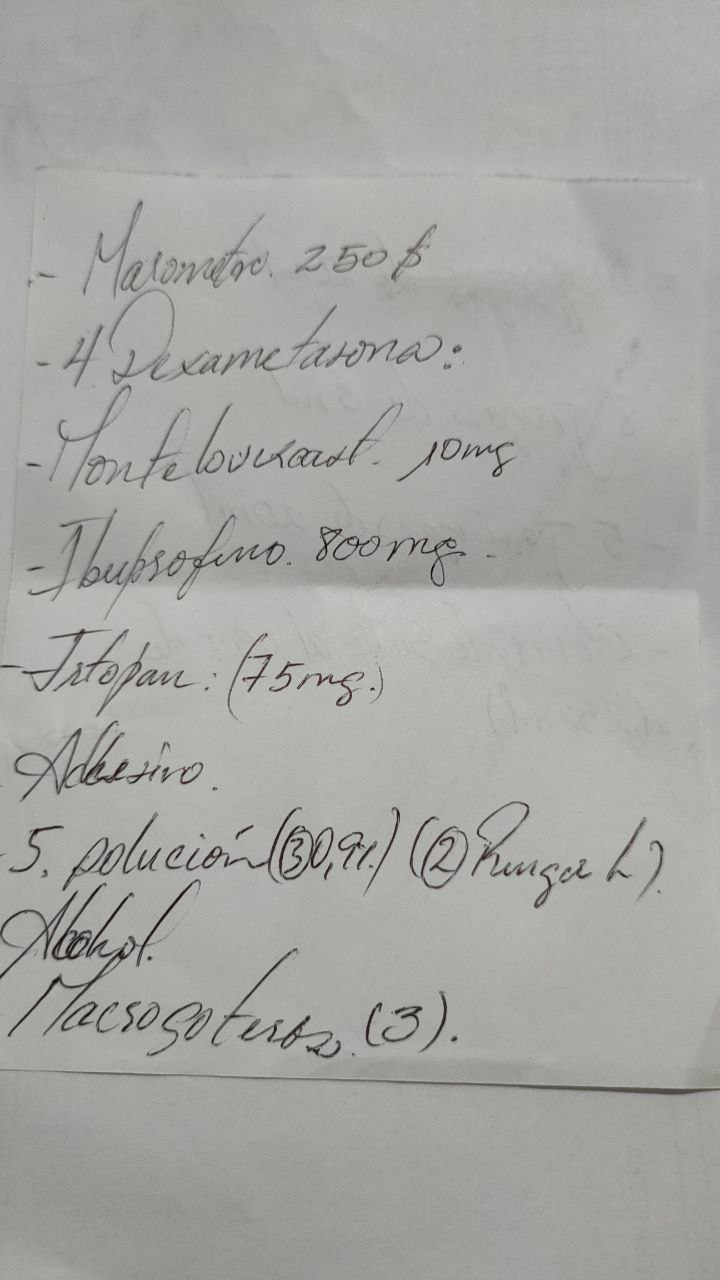 - Masometro. 250 $
- 4 Dexametasona:
- Montelouckast. 10mg
- Ibuprofeno. 800mg.
- (75mg.)
Adhesivo.
- 5. solución (③0,9%.) (② Ringer L).
Alcohol.
Macrogoteros. (3).